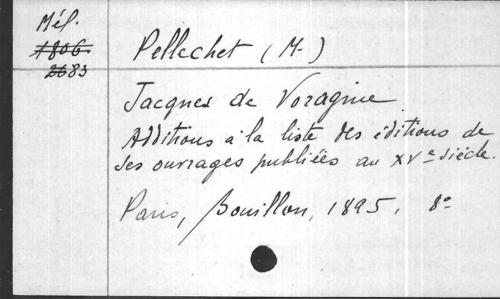 Mél.
1806.
2683
Pellechet (M.)
Jacques de Voragine
Additions à la liste des éditions de
ses ouvrages publiées au XVe siècle.
Paris, Bouillon, 1895, 8°